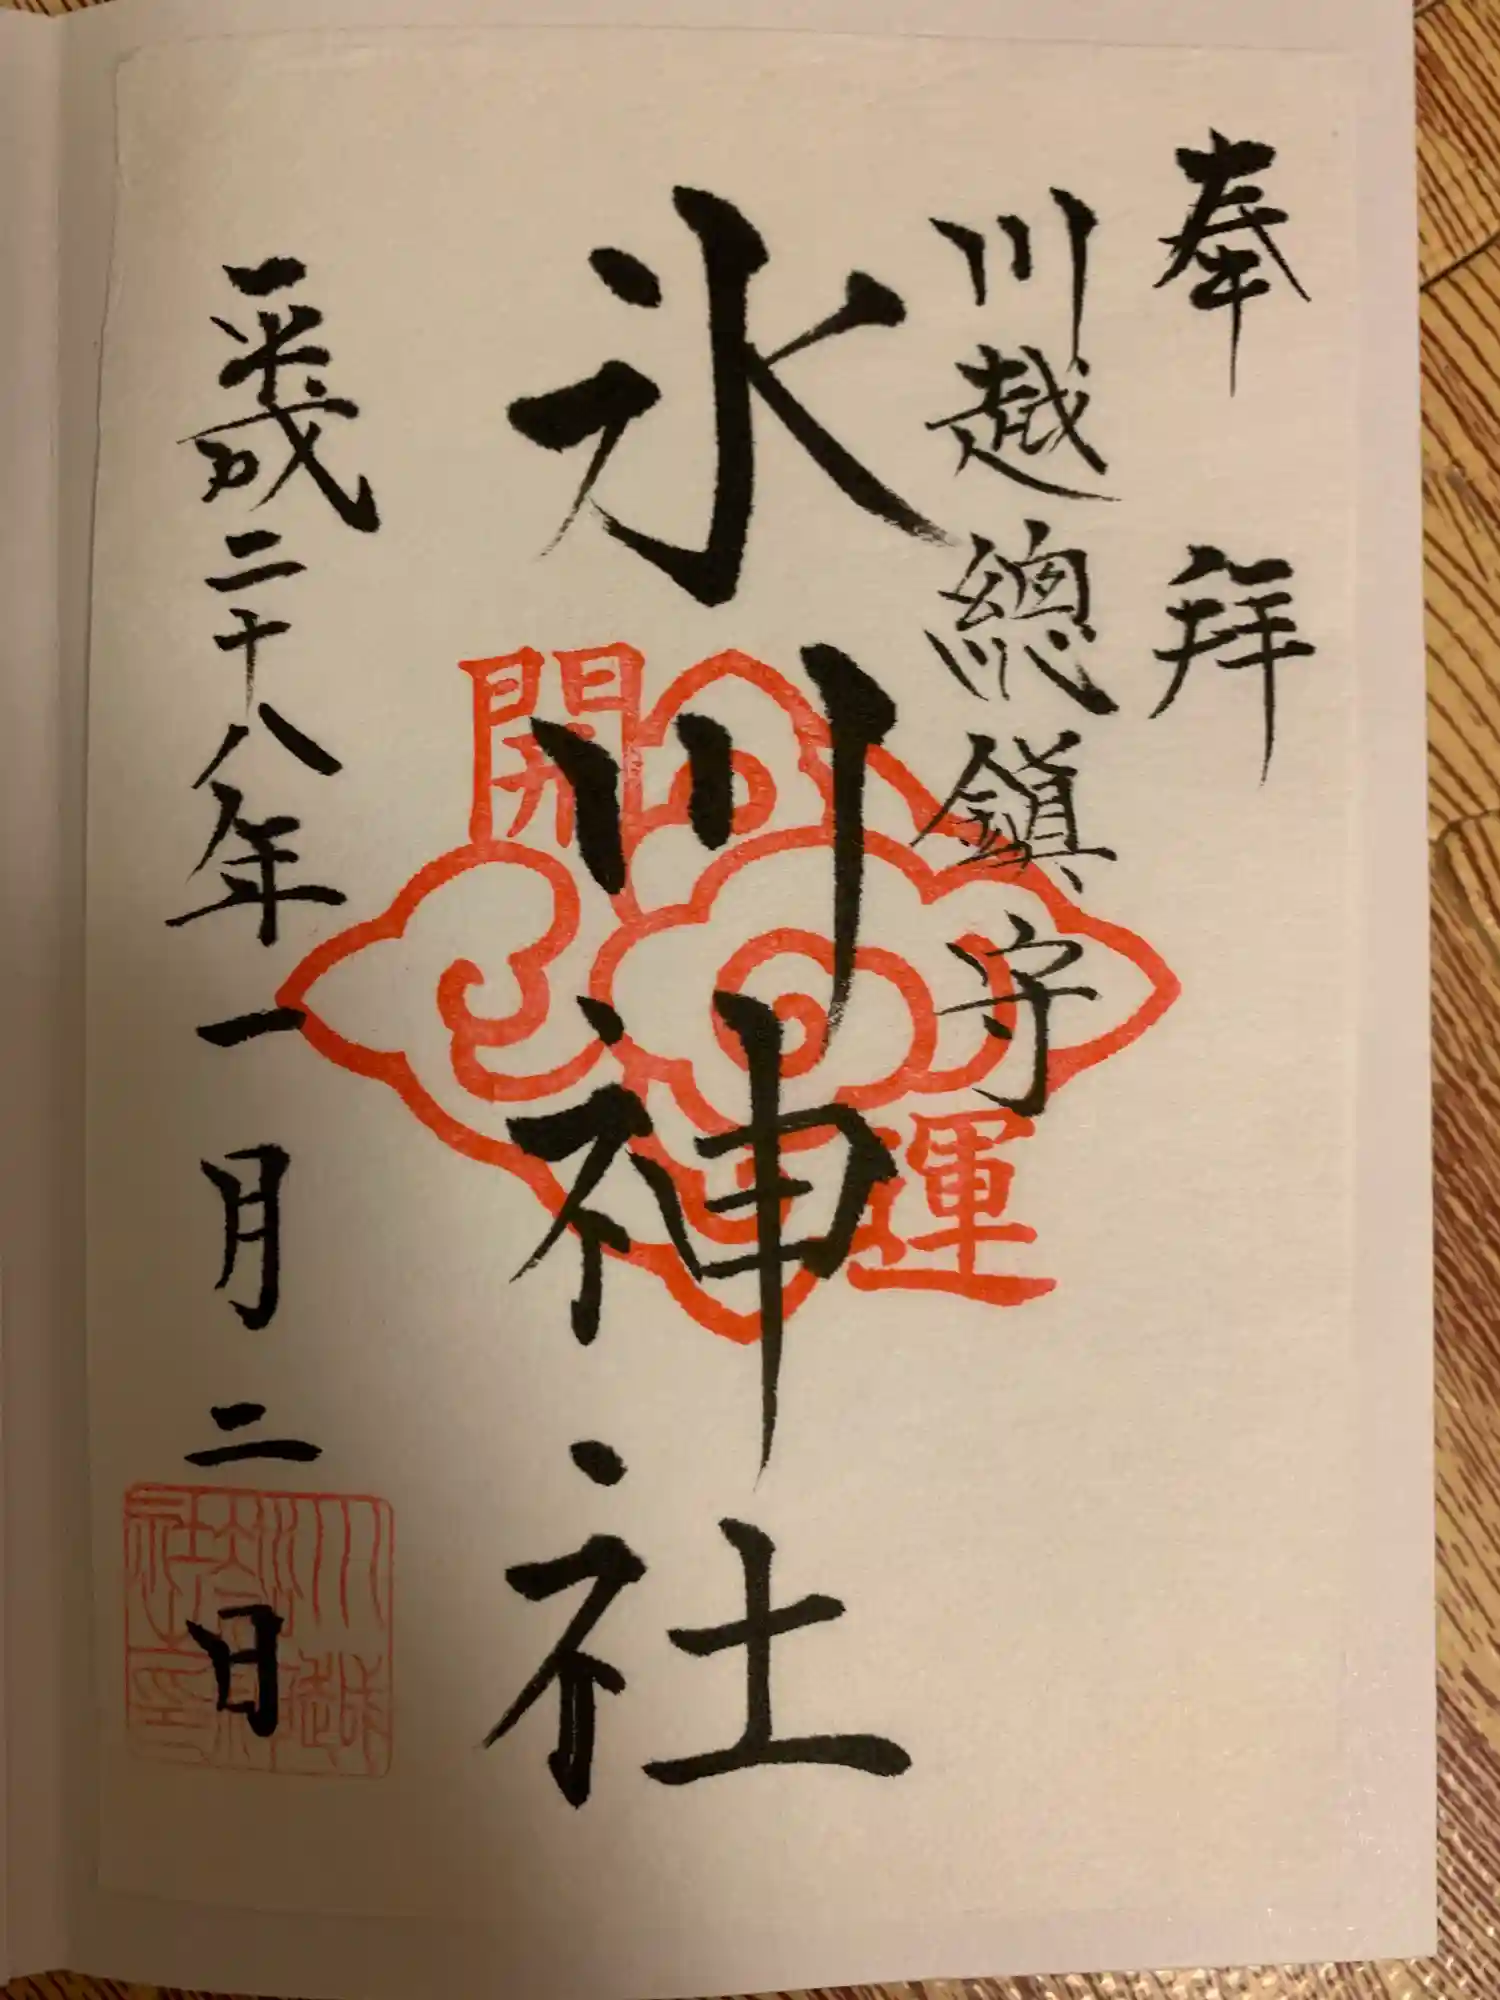 奉拜
川越總鎮守
氷川神社
開運
平成二十八年一月二日
川越氷川神社印